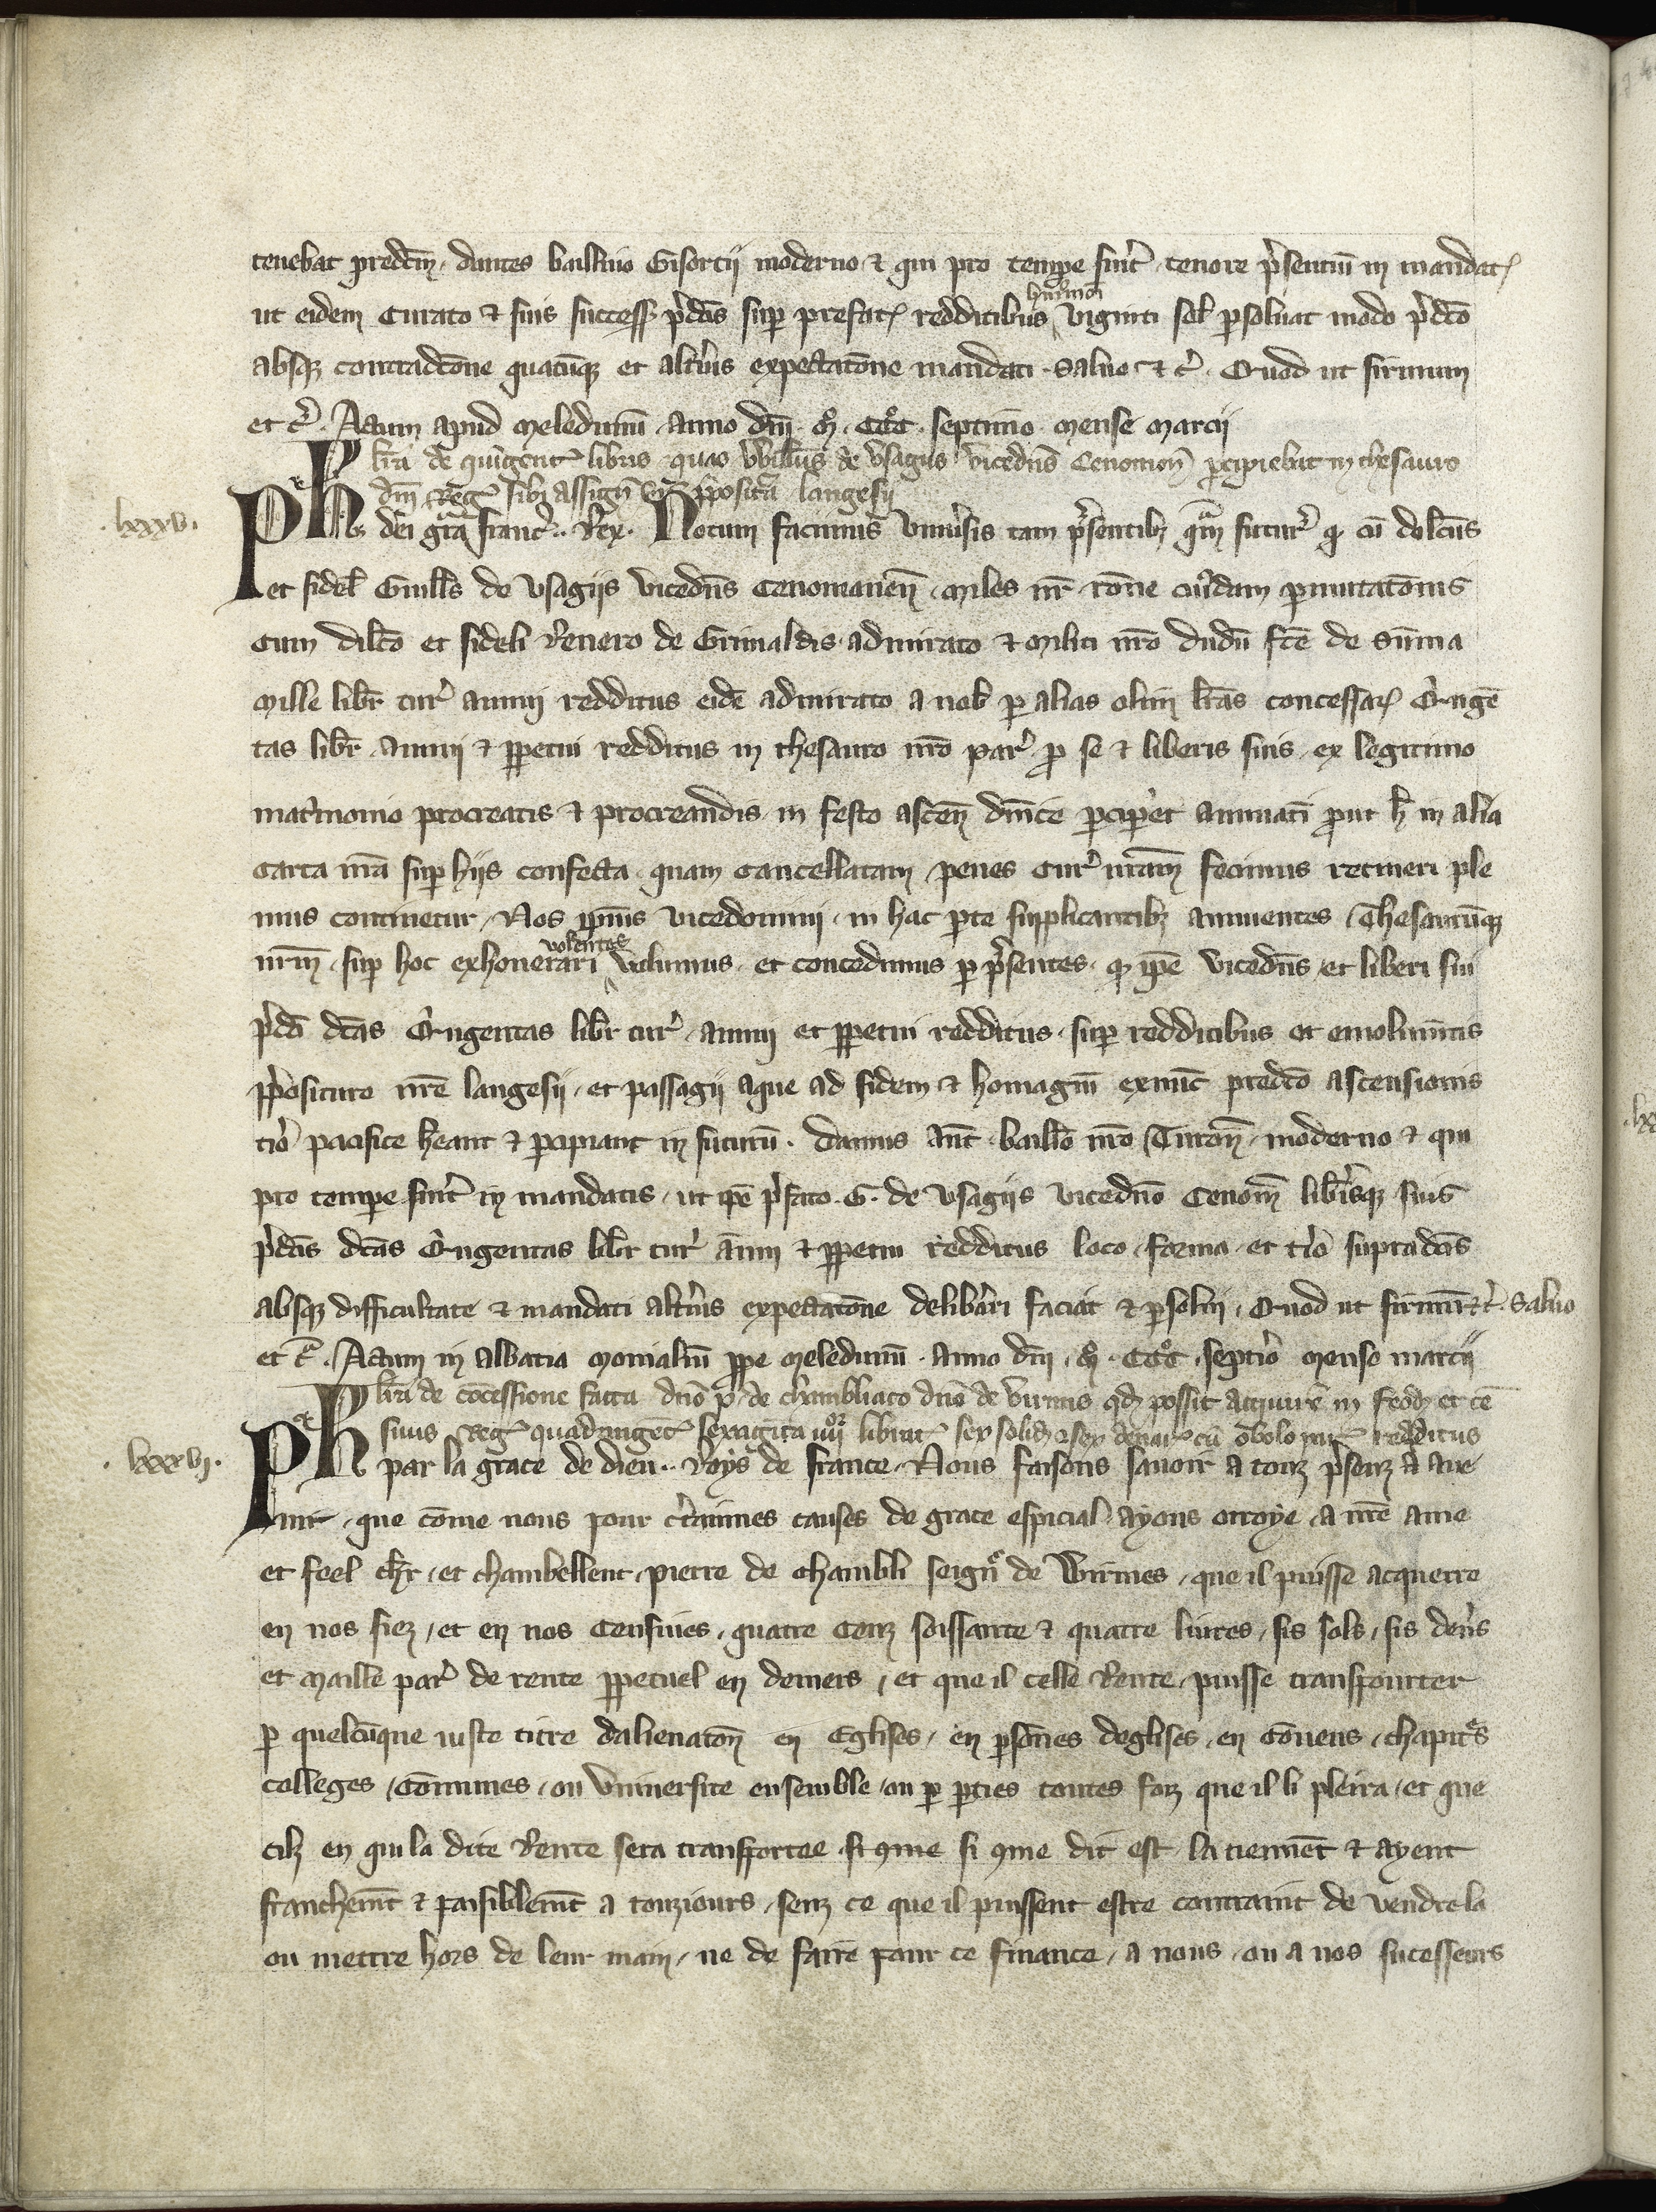 tenebat predcm, dantes baillivo Gisorcii moderno & qui pro tempe fuit tenore psentiu in mandat
ut eidem Curato & suis success pdcis sup prefat redditibus huiusmodi viginti sol psolvat modo pdco
absq contradcone quacuq et altius expectacone mandati. Salvo & c. Quod ut firmum
et c. Actum apud Meledunu. anno dni. Mo. CCCo. septimo. mense Marcii
Lra de quigent libris quas Willus de Usagiis vicedns Cenoman pcipiebat in thesauro
dni Reg sibi assign in ppositura Langesii
.lxxxv. Ph dei gra Franc.. Rex. Notum facimus universis tam psentib qm futur q cu dilcus
et fidel Guills de Usagiis vicedns Cenomanen, miles nr rone cuidam pmutaconis
cum dilco et fideli Renero de Grimaldis admirato & militi nro dudu fce de suma
mille libr tur annui redditus eide admirato a nob p alias olim lras concessar Quige
tas libr annui & ppetui redditus in thesauro nro par p se & liberis suis ex legitimo
matrimonio procreatis & procreandis in festo ascen dnice pciperet annuati put h in alia
carta nra sup hiis confecta quam cancellatam penes cur nram fecimus retineri ple
nius continetur, Nos ipius vicedomini, in hac pte supplicantib annuentes, Thesaurumq
nrm, sup hoc exhonerari volentes volumus, et concedimus p psentes, q ipe vicedns et liberi sui
pdci dcas Quigentas libr tur, annui et ppetui redditus, sup redditibus et emolumtis
ppositure nre Langesii, et passagii aque ad fidem & homagiu exnunc predco ascensionis
tio pacifice heant & pcipiant in futuru. Damus aut baillo nro Turon, moderno & qui
pro tempe fuit in mandatis, ut ipe pfato. G. de Usagiis vicedno Cenom librisq suis
pdcis dcas Quigentas libr tur anui & ppetui redditus loco, forma, et tio supradcis
absq difficultate & mandati altius expectacone delibari faciat & psolvi, Quod ut firmu & c. Salvo
et c. Actum in abbatia monialiu ppe Meledunu. anno dni. Mo. CCCo. septio mense marcii
Lra de cocessione facta dno P. de Chambliaco dno de Virmis qd possit acquire in feod et ce
sivis Reg quadringet sexagita iiiior librat sex solid & sex denar cu obolo par redditus
.lxxxvj. Ph par la grace de dieu.. Roys de France. Nous faisons savoir a touz psenz & a ave
nir, que come nous pour ctaines causes de grace especial ayons otroye, a nre ame
et feel chr, et chambellenc, Pierre de Chambli seign de Wirmes, que il puisse acquerre
en nos fiez, et en nos censives, quatre cenz soissante & quatre livres, sis sols, sis dens
et maille par de rente ppetuel en deniers, et que il celle Rente, puisse transpourter
p quelcuque iuste titre dalienacon en Eglises, en psones deglises, en Covens, chapitres
colleges, Comunes, ou Universite ensemble, ou p pties toutes foiz que il li pleira, et que
cilz en qui la dite Rente sera transportee si qme si qme dit est la tiennet & ayent
franchemt & paisiblemt a touziours, senz ce que il puissent estre contraint de vendre la
ou mettre hors de leur main, ne de faire pour ce finance, a nous, ou a nos sucesseurs